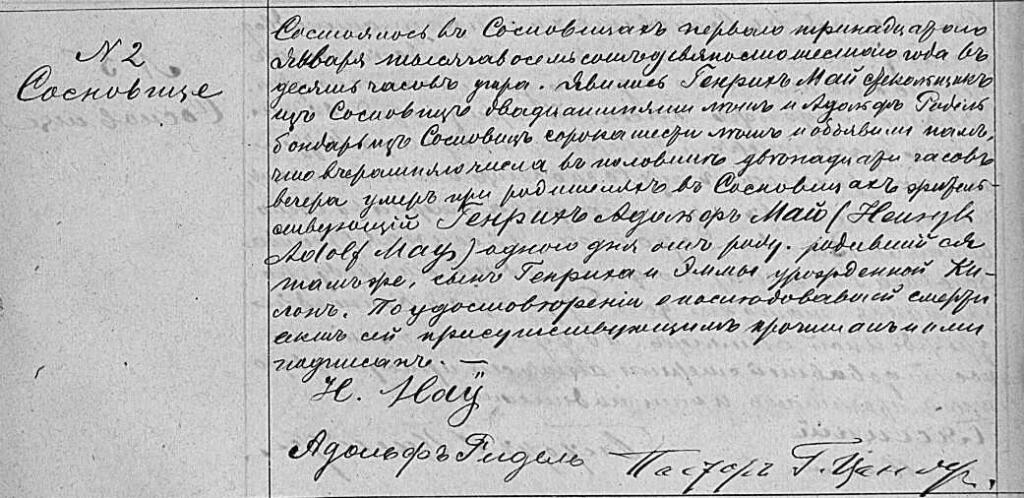 N 2
Сосновице
Состоялось въ Сосновицахъ перваго тринадцатаго
Января тысяча восемьсотъ девяносто шестого года въ
десять часовъ утра. Явились Генрихъ Май
изъ Сосновицъ двадцати пяти лѣтъ и Адольфъ Ридель
бондарь изъ Сосновицъ сорока шести лѣтъ и объявили намъ,
что вчерашняго числа въ половинѣ двѣнадцати часовъ
вечера умеръ при родителяхъ въ Сосновицахъ житель-
ствующій Генрихъ Адольфъ Май (Heinryk
Adolf May) одного дня отъ роду. родившійся
тамъ же, сынъ Генриха и Эммы урожденной Ки-
лонъ. По удостовѣреніи о послѣдовавшей смерти
актъ сей присутствующимъ прочитанъ и ими
подписанъ. —
H. May
Адольфъ Ридель
Пасторъ Г.